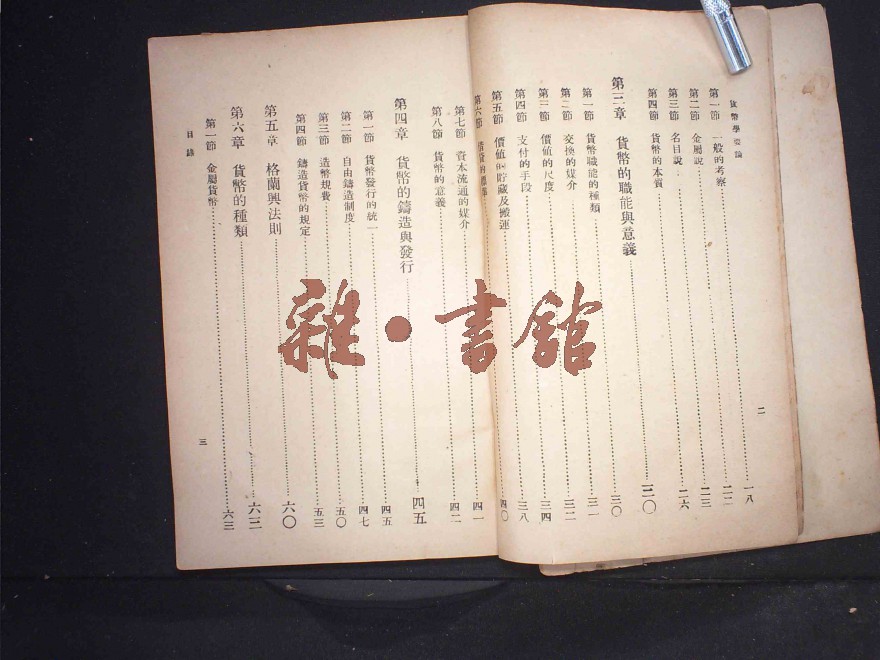 貨幣學要論
二
第一節 一般的考察 一八
第二節 金屬說 二二
第三節 名目說 二三
第四節 貨幣的本質 二六
第三章 貨幣的職能與意義 三〇
第一節 貨幣職能的種類 三〇
第二節 交換的媒介 三一
第三節 價値的尺度 三二
第四節 支付的手段 三四
第五節 價値的貯藏及搬運 三八
第六節 借貸的標準 四〇
第七節 資本流通的媒介 四一
第八節 貨幣的意義 四二
第四章 貨幣的鑄造與發行 四五
第一節 貨幣發行的統一 四五
第二節 自由鑄造制度 四七
第三節 造幣規費 五〇
第四節 鑄造貨幣的規定 五三
第五章 格蘭興法則 六〇
第六章 貨幣的種類 六三
第一節 金屬貨幣 六三
目錄
三
雜·書館